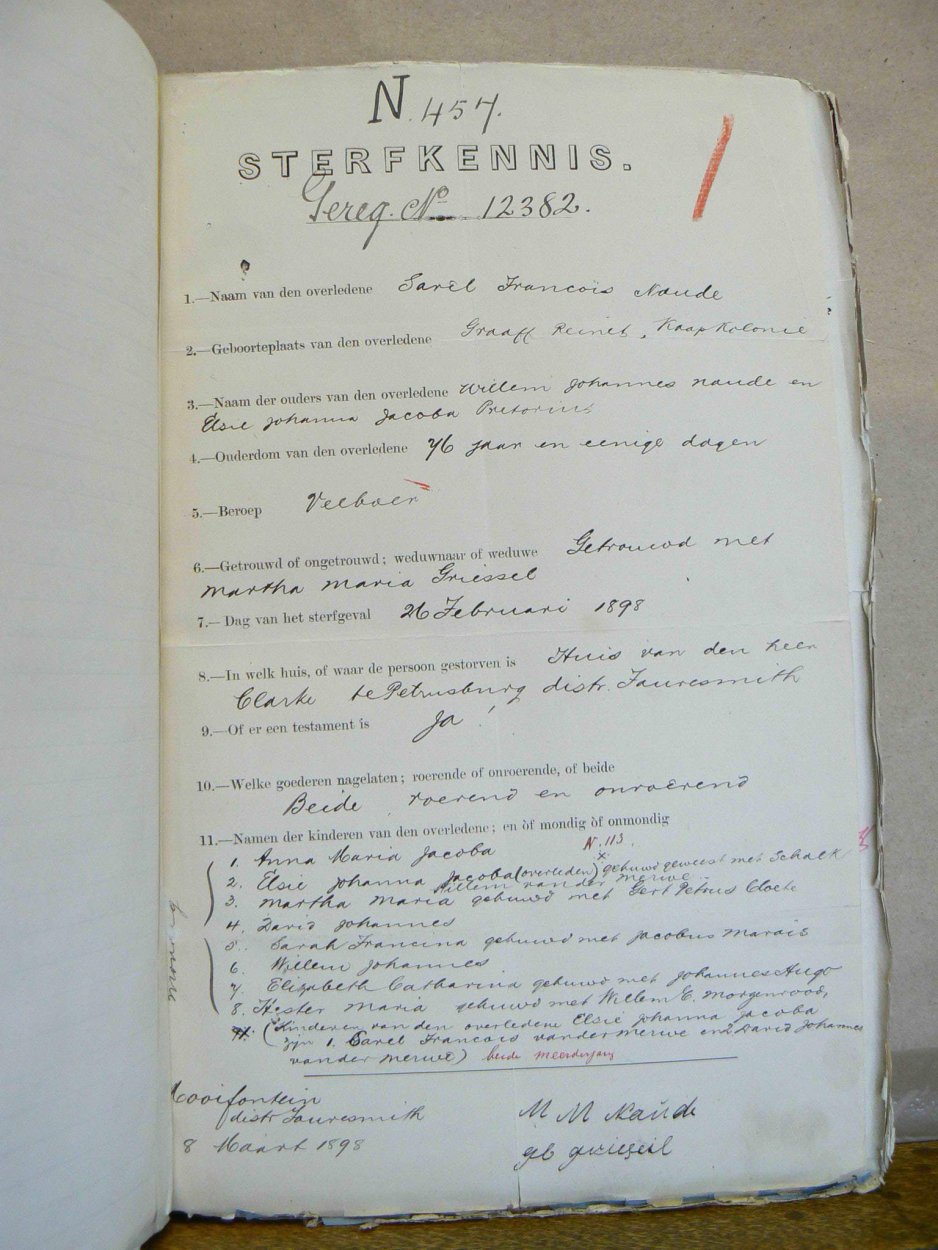 N. 457.
STERFKENNIS.
Gereg. No. 12382.
1.—Naam van den overledene Sarel Francois Naude
2.—Geboorteplaats van den overledene Graaff Reinet, Kaap Kolonie
3.—Naam der ouders van den overledene Willem Johannes Naude en
Elsie Johanna Jacoba Pretorius
4.—Ouderdom van den overledene 76 jaar en eenige dagen
5.—Beroep Veeboer
6.—Getrouwd of ongetrouwd; weduwnaar of weduwe Getrouwd met
Martha Maria Griessel
7.—Dag van het sterfgeval 26 Februari 1898
8.—In welk huis, of waar de persoon gestorven is Huis van den heer
Clarke te Petrusburg distr. Fauresmith
9.—Of er een testament is Ja!
10.—Welke goederen nagelaten; roerende of onroerende, of beide
Beide roerend en onroerend
11.—Namen der kinderen van den overledene; en òf mondig òf onmondig
N. 113.
1. Anna Maria Jacoba
2. Elsie Johanna Jacoba (overleden) x gehuwd geweest met Schalk
Willem van der Merwe
3. Martha Maria gehuwd met Gert Petrus Cloete
4. David Johannes
5. Sarah Francina gehuwd met Jacobus Marais
6. Willem Johannes
7. Elizabeth Catharina gehuwd met Johannes Hugo
8. Hester Maria gehuwd met Willem E. Morgenrood,
(Kinderen van den overledene Elsie Johanna Jacoba
zijn 1. Sarel Francois van der Merwe en 2 David Johannes
van der Merwe) beide meerderjarig
Mooifontein
distr Fauresmith
8 Maart 1898
M M Naude
gb griesel